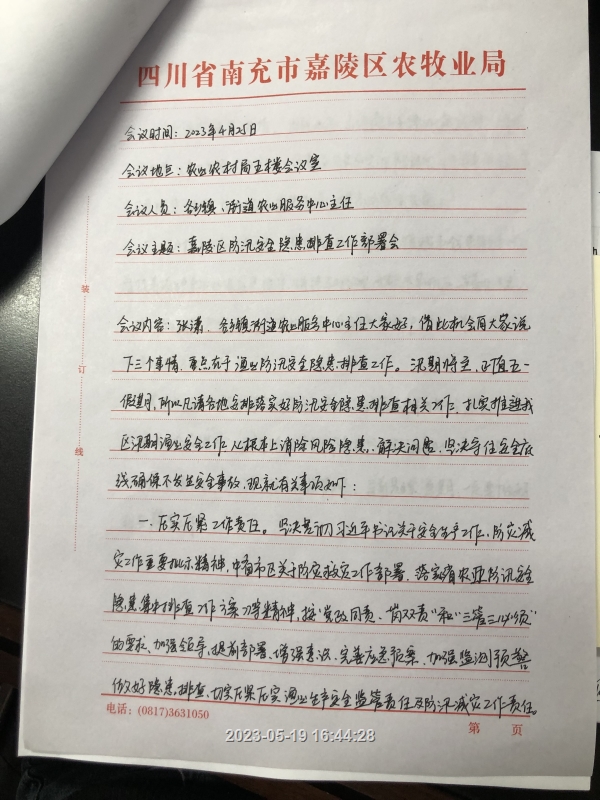 四川省南充市嘉陵区农牧业局
会议时间：2023年4月25日
会议地点：农业农村局五楼会议室
会议人员：各乡镇、街道农业服务中心主任
会议主题：嘉陵区防汛安全隐患排查工作部署会
会议内容：张潇：各乡镇街道农业服务中心主任大家好，借此机会向大家说
下三个事情，重点在于渔业防汛安全隐患排查工作。汛期将至，正值五一
假期，所以凡请各地安排落实好防汛安全隐患排查相关工作，扎实推进我
区汛期渔业安全工作，从根本上消除风险隐患，解决问题，坚决守住安全底
线，确保不发生安全事故，现就有关事项如下：
一、压实压紧工作责任。坚决贯彻习近平书记关于安全生产工作、防灾减
灾工作重要批示精神，中省市区关于防灾救灾工作部署，落实省农业防汛安全
隐患集中排查工作方案》等精神，按“党政同责、一岗双责”和“三管三必须”
的要求，加强领导，提前部署，增强意识，完善应急预案，加强监测预警
做好隐患排查，切实压紧压实渔业生产安全监管责任及防汛减灾工作责任。
装
订
线
电话：(0817)3631050
第 页
2023-05-19 16:44:28